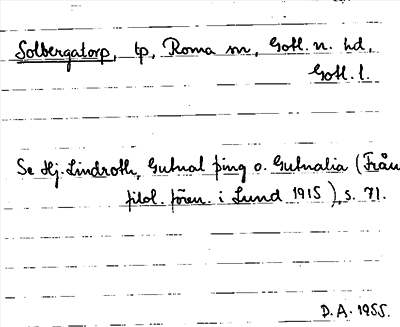 Solbergatorp, tp, Roma sn, Gotl. n. hd,
Gotl. l.
Se Hj. Lindroth, Gutnal þing o. Gutnalia (Från
filol. fören. i Lund 1915), s. 71.
D. A. 1955.